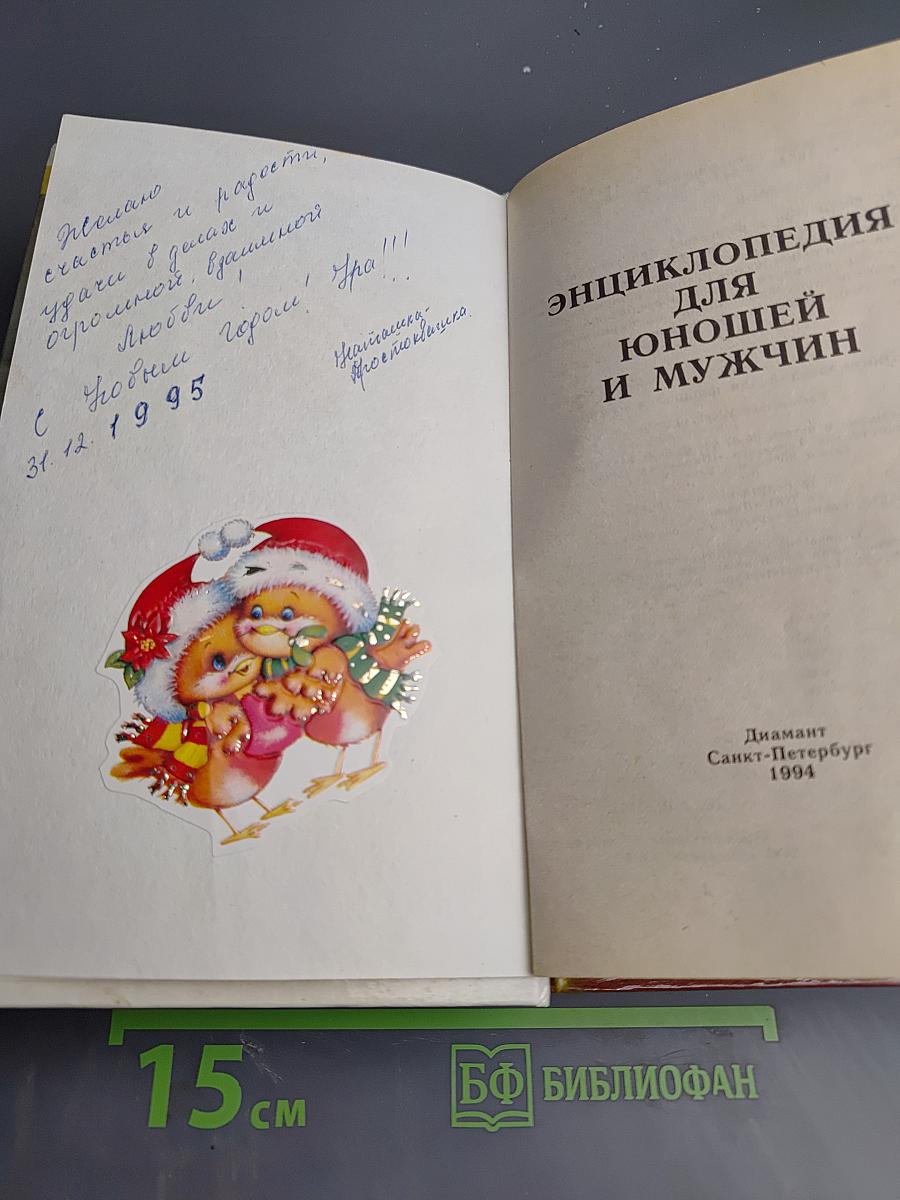 Желаю
счастья и радости,
удачи в делах и
огромной, взаимной
Любви!
С Новым годом! Ура!!!
Наташка-
Простоквашка.
31.12.1995
ЭНЦИКЛОПЕДИЯ
ДЛЯ
ЮНОШЕЙ
И МУЖЧИН
Диамант
Санкт-Петербург
1994
15 см
БФ БИБЛИОФАН